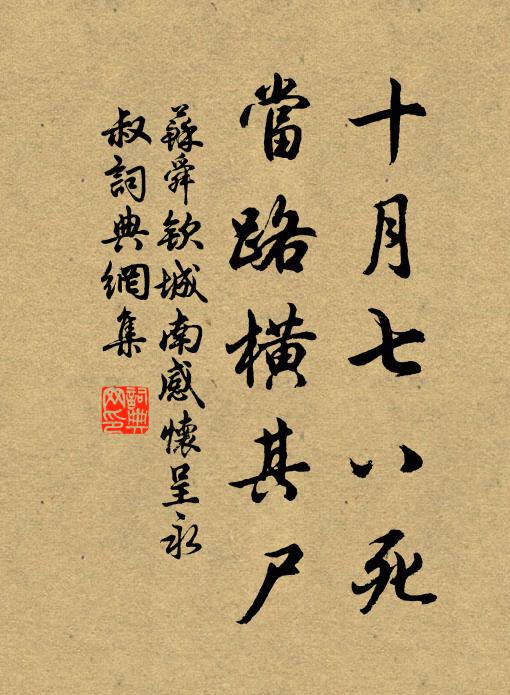 十月七八死
當路橫其尸
蘇舜欽城南感懷呈永
叔詞典網集
詞典
网印